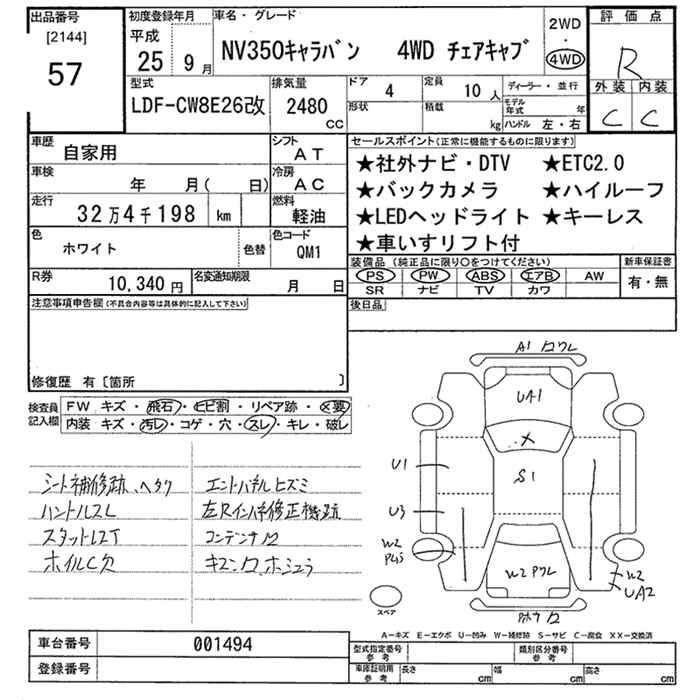 出品番号
[2144]
57
初度登録年月
平成
25 9月
車名・グレード
NV350キャラバン 4WD チェアキャブ
2WD
・
4WD
評価点
R
外装 内装
C C
型式
LDF-CW8E26改
排気量
2480
CC
ドア
4
定員
10人
形状
積載
kg
ディーラー・並行
モデル年式
年
ハンドル 左・右
車歴
自家用
シフト
AT
車検
年 月( 日)
冷房
AC
走行
32万4千198 km
燃料
軽油
色
ホワイト
色替
色コード
QM1
R券
10,340円
名変通知期限
月 日
セールスポイント(正常に機能するものに限ります)
★社外ナビ・DTV ★ETC2.0
★バックカメラ ★ハイルーフ
★LEDヘッドライト ★キーレス
★車いすリフト付
装備品(純正品に限り○をつけてください)
PS PW ABS エアB AW
SR ナビ TV カワ
新車保証書
有・無
後日品
注意事項申告欄(不具合内容等は具体的に記入して下さい)
修復歴 有〔箇所 〕
検査員記入欄
FW キズ・飛石・ヒビ割・リペア跡・X要
内装 キズ・汚レ・コゲ・穴・スレ・キレ・破レ
シート補修跡、ヘタク
ハンドルスレ
スタットレスT
ホイルC欠
エンドパネルヒズミ
左Rインパネ修正機跡
コンデンサ
A1
UA1
X
S1
U1
U3
W2
W2
W2
UA2
スペア
A-キズ E-エクボ U-凹み W-補修跡 S-サビ C-腐食 XX-交換済
車台番号
001494
登録番号
型式指定番号
参考
類別区分番号
参考
車庫証明用
参考
長さ cm
幅 cm
高さ cm